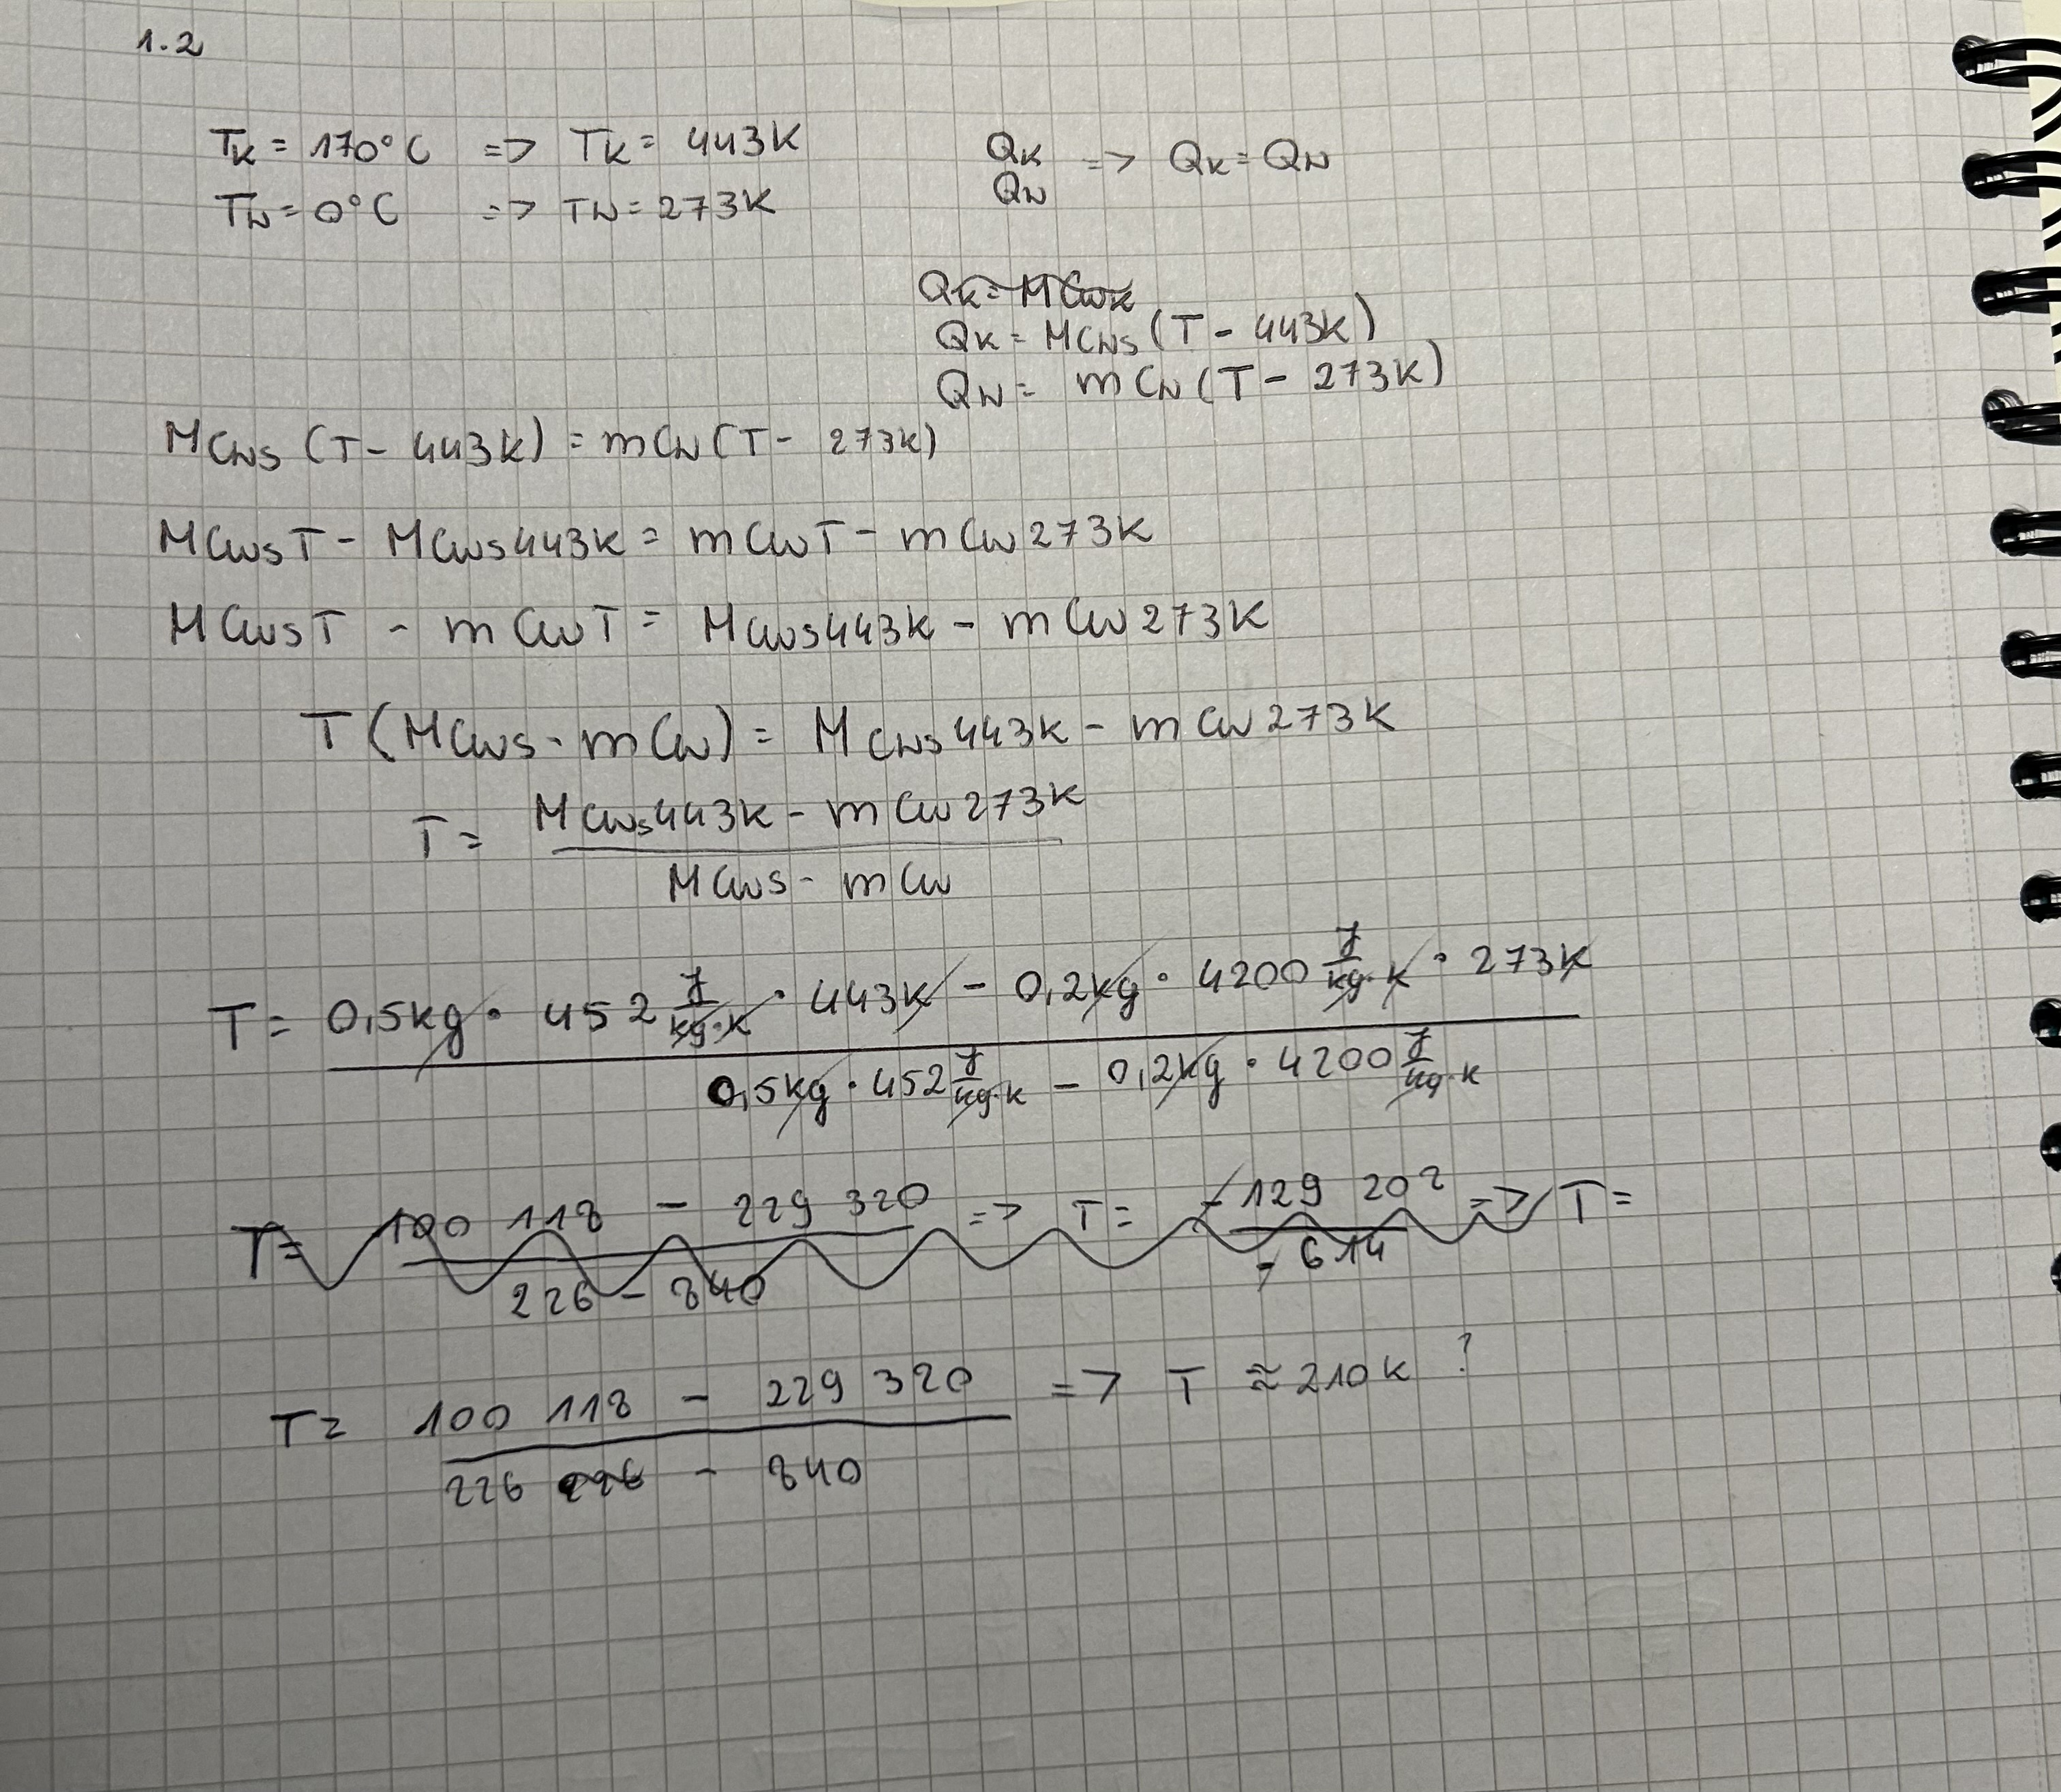 1.2
T_K = 170°C => T_K = 443K
T_W = 0°C => T_W = 273K
Q_K
Q_W => Q_K = Q_W
Q_K = M C_WK
Q_K = M C_WS (T - 443K)
Q_W = m C_W (T - 273K)
M C_WS (T - 443K) = m C_W (T - 273K)
M C_WS T - M C_WS 443K = m C_W T - m C_W 273K
M C_WS T - m C_W T = M C_WS 443K - m C_W 273K
T (M C_WS - m C_W) = M C_WS 443K - m C_W 273K
T = (M C_WS 443K - m C_W 273K) / (M C_WS - m C_W)
T = (0,5kg · 452 J/(kg·K) · 443K - 0,2kg · 4200 J/(kg·K) · 273K) / (0,5kg · 452 J/(kg·K) - 0,2kg · 4200 J/(kg·K))
T = (100 118 - 229 320) / (226 - 840) => T = (-129 202) / (-614) => T =
T = (100 118 - 229 320) / (226 226 - 840) => T ≈ 210K ?